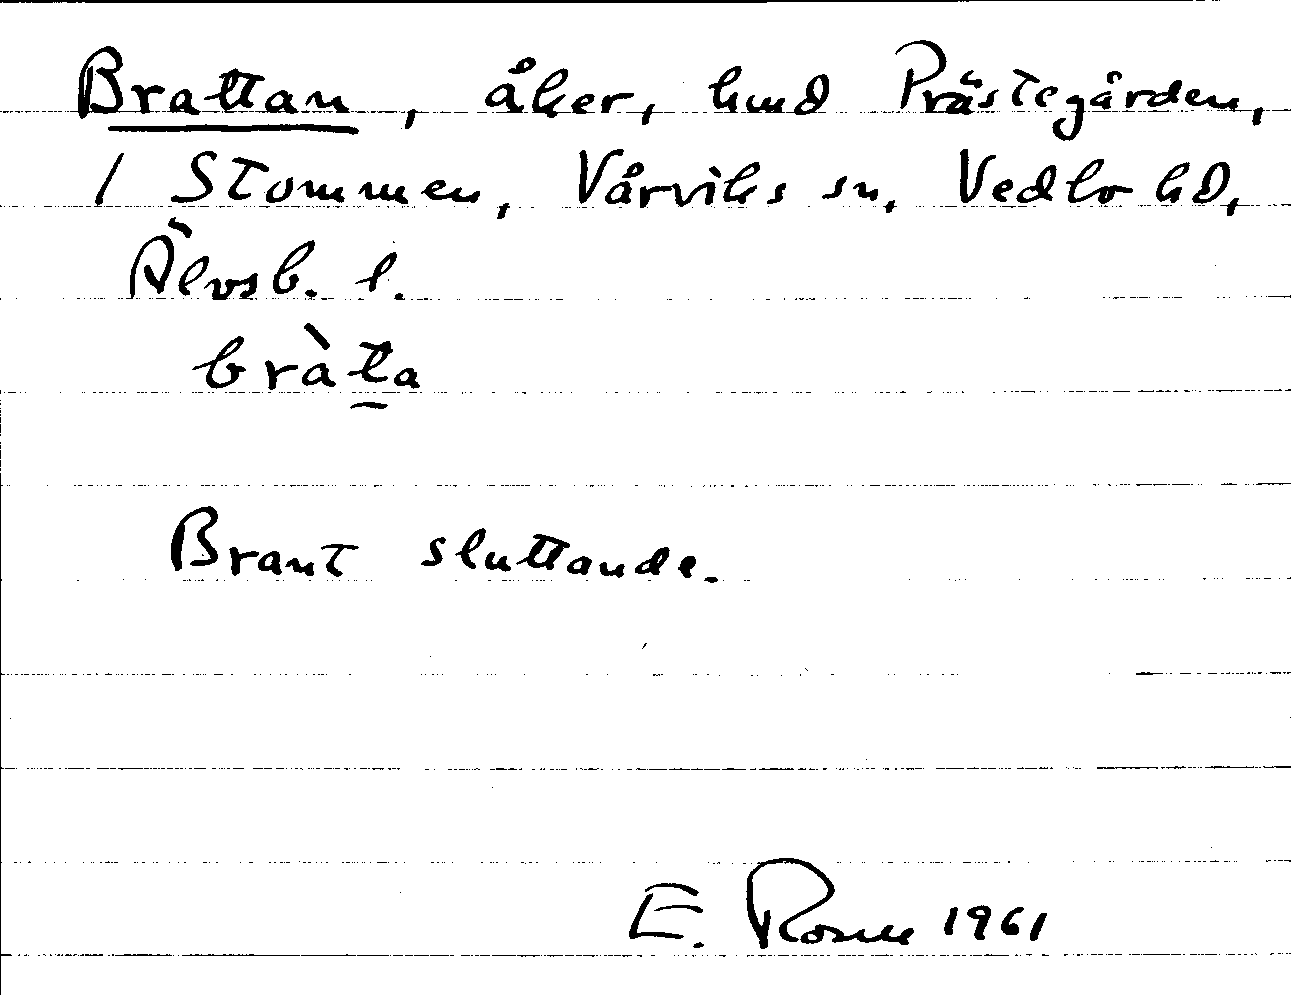 Brattan, åker, hmd Prästegården,
1 Stommen, Vårviks sn, Vedbo hd,
Älvsb. l.
bràta
Brant sluttande.
E. Rosell 1961